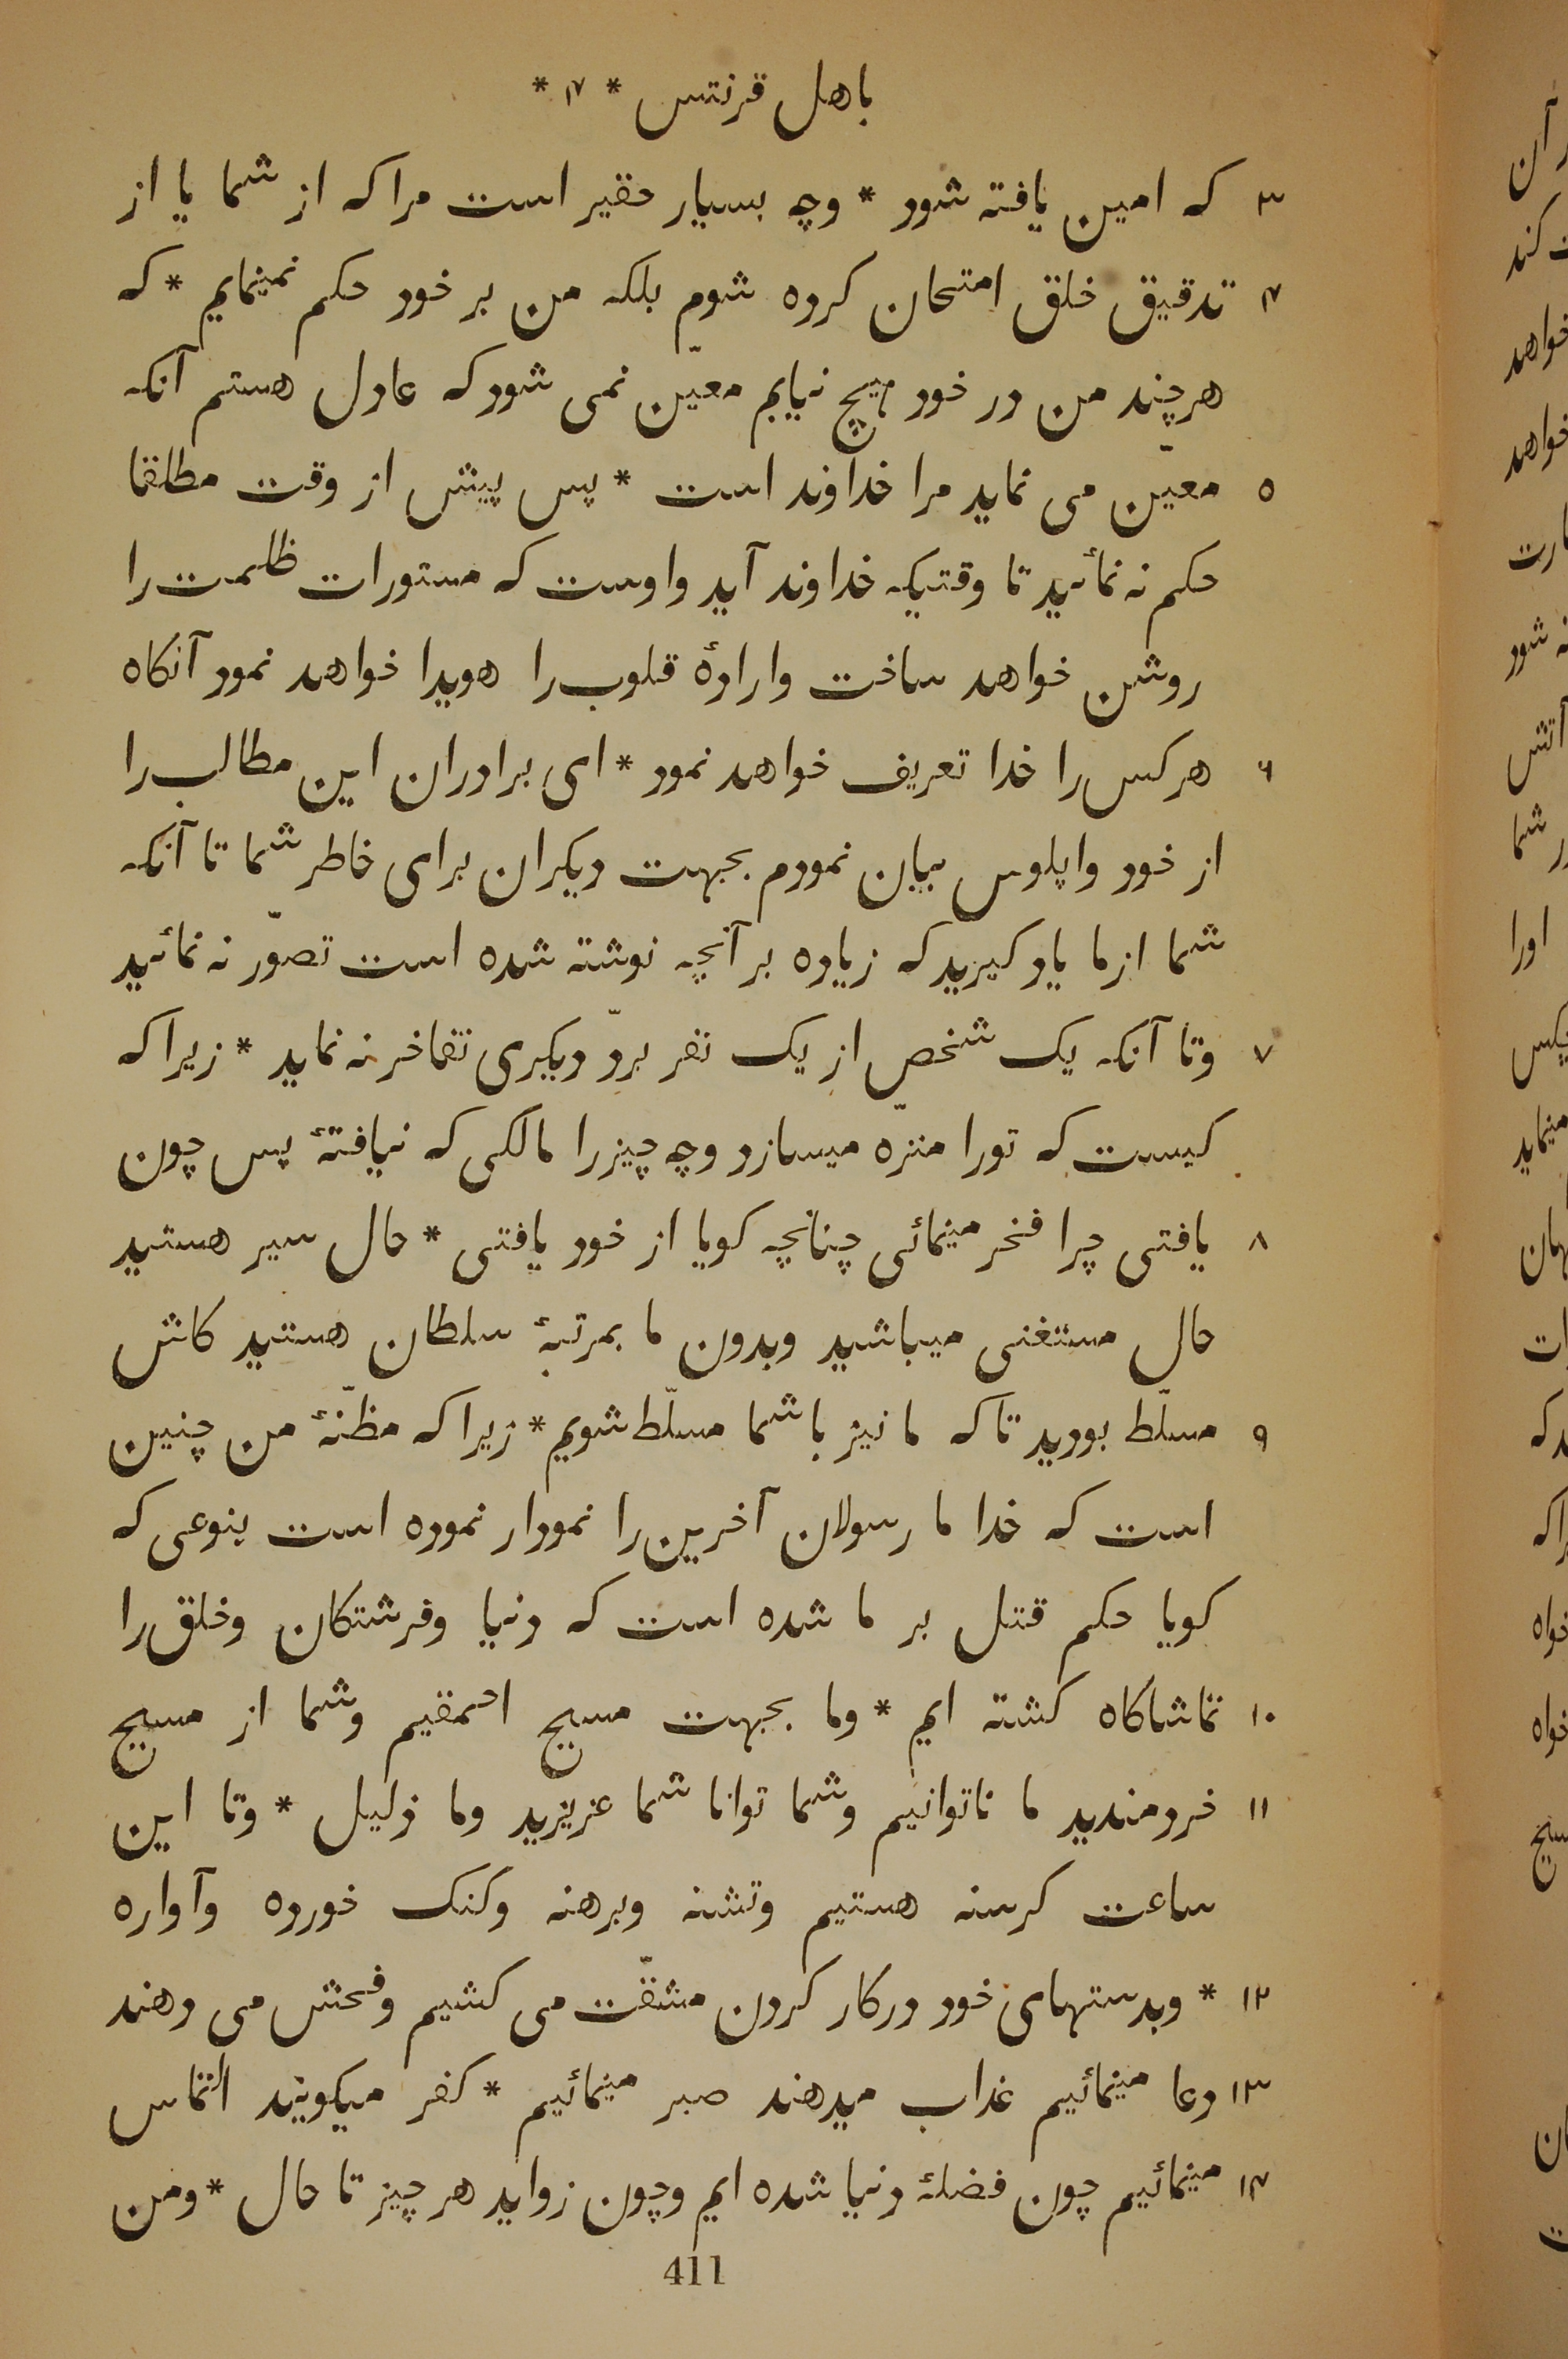 باهل قرنتس * ۴ *
۳ که امین یافته شود * وچه بسیار حقیر است مرا که از شما یا از
۴ تدقیق خلق امتحان کرده شوم بلکه من بر خود حکم نمینمایم * که
هرچند من در خود هیچ نیابم معیّن نمی شود که عادل هستم آنکه
۵ معیّن می نماید مرا خداوند است * پس پیش از وقت مطلقا
حکم نه نمائید تا وقتیکه خداوند آید واوست که مستورات ظلمت را
روشن خواهد ساخت وارادهٔ قلوب را هویدا خواهد نمود آنکاه
۶ هر کس را خدا تعریف خواهد نمود * ای برادران این مطالب را
از خود واپلوس بیان نمودم بجهت دیکران برای خاطر شما تا آنکه
شما از ما یاد کیرید که زیاده بر آنچه نوشته شده است تصوّر نه نمائید
۷ وتا آنکه یک شخص از یک نفر بردّ دیکری تفاخر نه نماید * زیرا که
کیست که تورا منزّه میسازد وچه چیز را مالکی که نیافتهٔ پس چون
۸ یافتی چرا فخر مینمائی چنانچه کویا از خود یافتی * حال سیر هستید
حال مستغنی میباشید وبدون ما بمرتبهٔ سلطان هستید کاش
۹ مسلّط بودید تا که ما نیز با شما مسلّط شویم * زیرا که مظنّهٔ من چنین
است که خدا ما رسولان آخرین را نمودار نموده است بنوعی که
کویا حکم قتل بر ما شده است که دنیا وفرشتکان وخلق را
۱۰ تماشاکاه کشته ایم * وما بجهت مسیح احمقیم وشما از مسیح
۱۱ خردمندید ما ناتوانیم وشما توانا شما عزیزید وما ذلیل * وتا این
ساعت کرسنه هستیم وتشنه وبرهنه وکتک خورده وآواره
۱۲ * وبدستهای خود در کار کردن مشقّت می کشیم وفحش می دهند
۱۳ دعا مینمائیم عذاب میدهند صبر مینمائیم * کفر میکویند التماس
۱۴ مینمائیم چون فضلهٔ دنیا شده ایم وچون زواید هر چیز تا حال * ومن
411